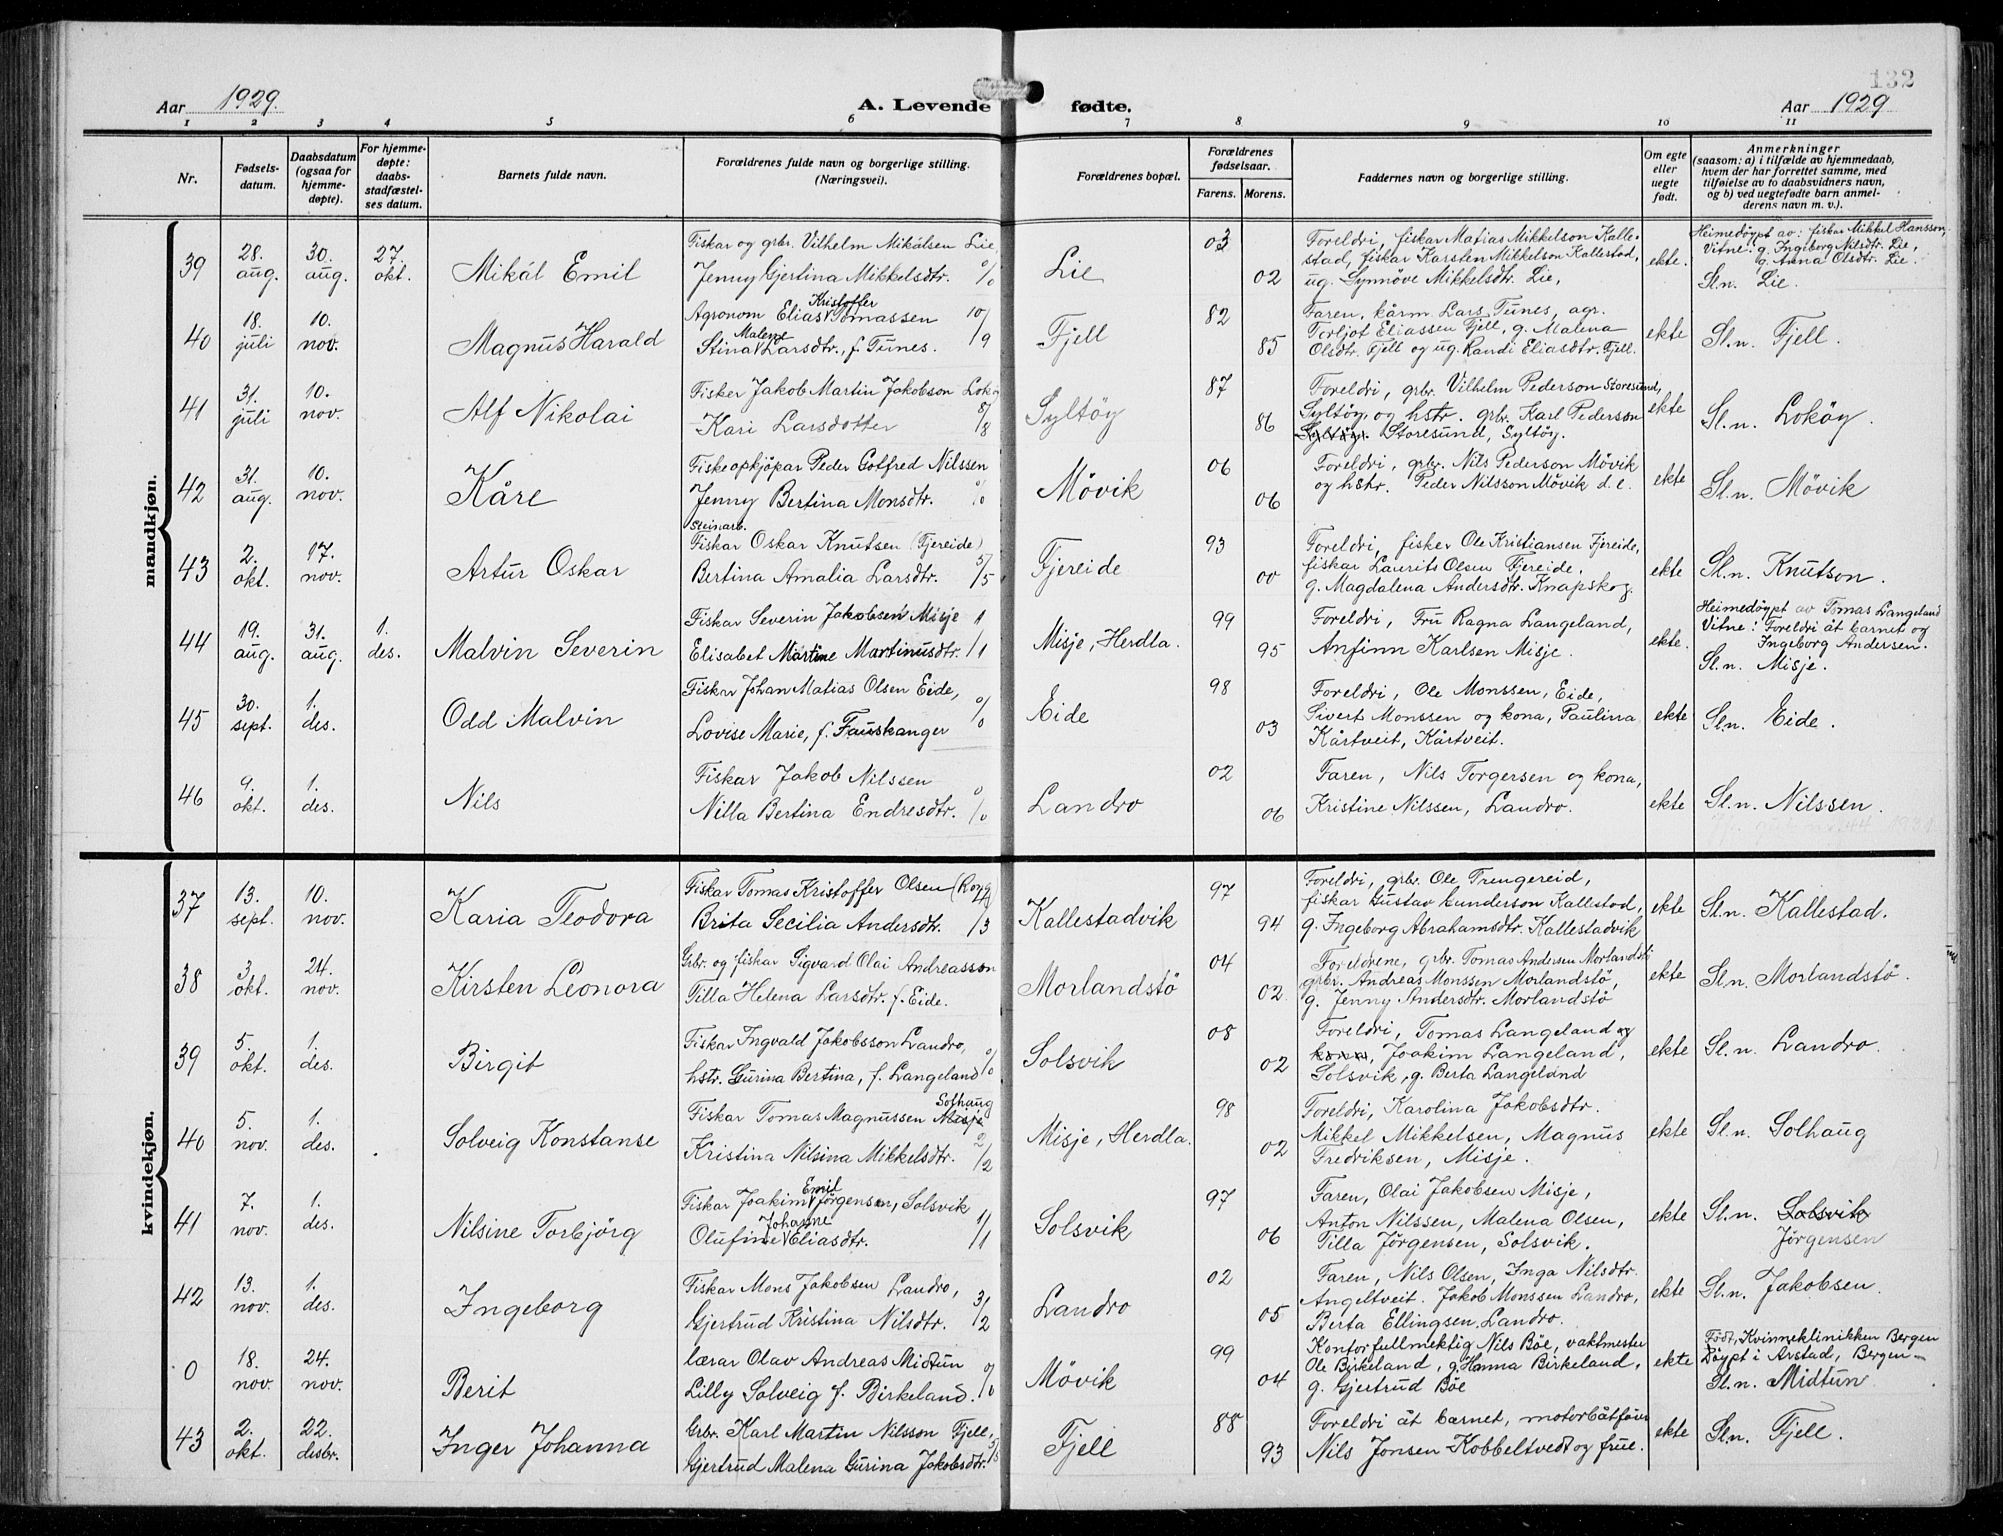 132
Aar 1929. A. Levende fødte. Aar 1929
1 2 3 4 5 6 7 8 9 10 11
Nr.
Fødsels-
datum.
Daabsdatum
(ogsaa for
hjemme-
døpte).
For hjemme-
døpte:
daabs-
stadfæstel-
ses datum.
Barnets fulde navn.
Forældrenes fulde navn og borgerlige stilling.
(Næringsvei).
Forældrenes bopæl.
Forældrenes
fødselsaar.
Farens. Morens.
Faddernes navn og borgerlige stilling.
Om egte
eller
uegte
født.
Anmerkninger
(saasom: a) i tilfælde av hjemmedaab,
hvem der har forrettet samme, med
tilføielse av to daabsvidners navn,
og b) ved uegtefødte barn anmel-
derens navn m. v.).
mandkjøn.
39
28.
aug.
30.
aug.
27.
okt.
Mikál Emil
Fiskar og grbr. Vilhelm Mikálsen Lie,
Jenny Gjertina Mikkelsdtr. 0/0
Lie
03
02
Foreldri, fiskar Matias Mikkelson Kalle-
stad, fiskar Karsten Mikkelson Kallestad,
ug. Synnöve Mikkelsdtr. Lie,
ekte.
Heimedöypt av: fiskar Mikkel Hansson,
Vitne: g. Ingeborg Nilsdtr. Lie,
g. Anna Olsdtr. Lie.
Sl.n. Lie.
40
18.
juli
10.
nov.
Magnus Harald
Kristoffer
Agronom Elias Tomassen 10/9
Malene
Stina Larsdtr., f. Tunes.
Fjell
82
85
Faren, kårm. Lars Tunes, agr.
Torljot Eliassen Fjell, g. Malena
Olsdtr. Fjell og ug. Randi Eliasdtr. Fjell.
ekte
Sl.n. Fjell.
41
31.
juli
10.
nov.
Alf Nikolai
Fisker Jakob Martin Jakobson Loköy
Kari Larsdotter 8/8
Syltöy
87
86
Foreldri, grbr. Vilhelm Pederson Storesund,
Syltöy, og hstr. grbr. Karl Pederson
Syltöy. Storesund, Syltöy.
ekte
Sl.n. Loköy.
42
31.
aug.
10.
nov.
Kåre
Fiskeopkjöpar Peder Gotfred Nilssen
Jenny Bertina Monsdtr. 0/0
Mövik
06
06
Foreldri, grbr. Nils Pederson Mövik
og hstr. Peder Nilsson Mövik d.e.
ekte
Sl.n. Mövik
43
2.
okt.
17.
nov.
Artur Oskar
Steinarb.
Fiskar Oskar Knutsen (Fjereide)
Bertina Amalia Larsdtr. 5/5
Fjereide
93
00
Foreldri, fisker Ole Kristiansen Fjereide,
fiskar Laurits Olsen Fjereide,
g. Magdalena Andersdtr. Knapskog.
ekte
Sl.n. Knutson.
44
19.
aug.
31.
aug.
1.
des.
Malvin Severin
Fiskar Severin Jakobsen Misje
Elisabet Martine Martinusdtr. 1/1
Misje, Herdla.
99
95
Foreldri, Fru Ragna Langeland,
Anfinn Karlsen Misje.
ekte.
Heimedöypt av Tomas Langeland
Vitne: Foreldri åt barnet og
Ingeborg Andersen.
Sl.n. Misje.
45
30.
sept.
1.
des.
Odd Malvin
Fiskar Johan Matias Olsen Eide,
Lovise Marie, f. Fauskanger 0/0
Eide
98
03
Foreldri, Ole Monssen, Eide,
Sivert Monssen og kona, Paulina
Kårtveit, Kårtveit.
ekte
Sl.n. Eide.
46
9.
okt.
1.
des.
Nils
Fiskar Jakob Nilssen
Nilla Bertina Endresdtr. 0/0
Landro
02
06
Faren, Nils Torgersen og kona,
Kristine Nilssen, Landro.
ekte
Sl.n. Nilssen.
kvindekjøn.
37
13.
sept.
10.
nov.
Karia Teodora
Fiskar Tomas Kristoffer Olsen
Brita Secilia Andersdtr. 4/3
Kallestadvik
97
94
Foreldri, grbr. Ole Trengereid,
fiskar Gustav Gunderson Kallestad,
g. Ingeborg Abrahamsdtr. Kallestadvik
ekte
Sl.n. Kallestad.
38
3.
okt.
24.
nov.
Kirsten Leonora
Grbr. og fiskar Sigvard Olai Andreasson
Tilla Helena Larsdtr. f. Eide.
Morlandstö
04
02
Foreldrene, grbr. Tomas Andersen Morlandstö
grbr. Andreas Monssen Morlandstö,
g. Jenny Andersdtr. Morlandstö
ekte
Sl.n. Morlandstö.
39
5.
okt.
1.
des.
Birgit
Fiskar Ingvald Jakobsson Landro,
hstr. Gurina Bertina, f. Langeland 0/0
Solsvik
08
02
Foreldri, Tomas Langeland og
kona, Joakim Langeland,
Solsvik, g. Berta Langeland
ekte
Sl.n. Landro.
40
5.
nov.
1.
des.
Solveig Konstanse
Solhaug
Fiskar Tomas Magnussen Misje
Kristina Nilsina Mikkelsdtr. 2/2
Misje, Herdla.
98
02
Foreldri, Karolina Jakobsdtr.
Mikkel Mikkelsen, Magnus
Fredriksen, Misje.
ekte
Sl.n. Solhaug
41
7.
nov.
1.
des.
Nilsine Torbjörg
Emil
Fiskar Joakim Jörgensen, Solsvik
Johanne
Olufine Eliasdtr. 1/1
Solsvik
97
06
Faren, Olai Jakobsen Misje,
Anton Nilssen, Malena Olsen,
Tilla Jörgensen, Solsvik.
ekte
Sl.n. Solsvik
Jörgensen
42
13.
nov.
1.
des.
Ingeborg
Fiskar Mons Jakobsen Landro,
Gjertrud Kristina Nilsdtr. 3/2
Landro
02
05
Faren, Nils Olsen, Inga Nilsdtr.
Angeltveit. Jakob Monssen Landro,
Berta Ellingsen, Landro.
ekte
Sl.n. Jakobsen.
0
18.
nov.
24.
nov.
Berit
lærar Olav Andreas Midtun
Lilly Solveig f. Birkeland. 0/0
Mövik
99
04
Kontorfullmektig Nils Böe, vaktmester
Ole Birkeland, g. Hanna Birkeland,
g. Gjertrud Böe
ekte
Född, Kvinneklinikken Bergen
Döypt i Årstad, Bergen.
Sl.n. Midtun
43
2.
okt.
22.
desbr.
Inger Johanna
Grbr. Karl Martin Nilsson Fjell,
Gjertrud Malena Gurina Jakobsdtr.
Fjell
88
93
Foreldri åt barnet, motorbåtförar
Nils Jonsen Kobbeltvedt og frue.
ekte
Sl.n. Fjell.